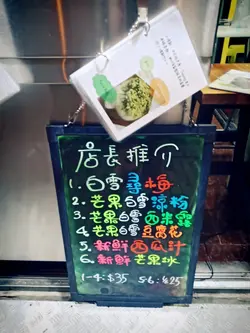 店長推介
1. 白雪尋梅
2. 芒果白雪涼粉
3. 芒果白雪西米露
4. 芒果白雪豆腐花
5. 新鮮西瓜汁
6. 新鮮芒果冰
1-4: $35 5-6: $25